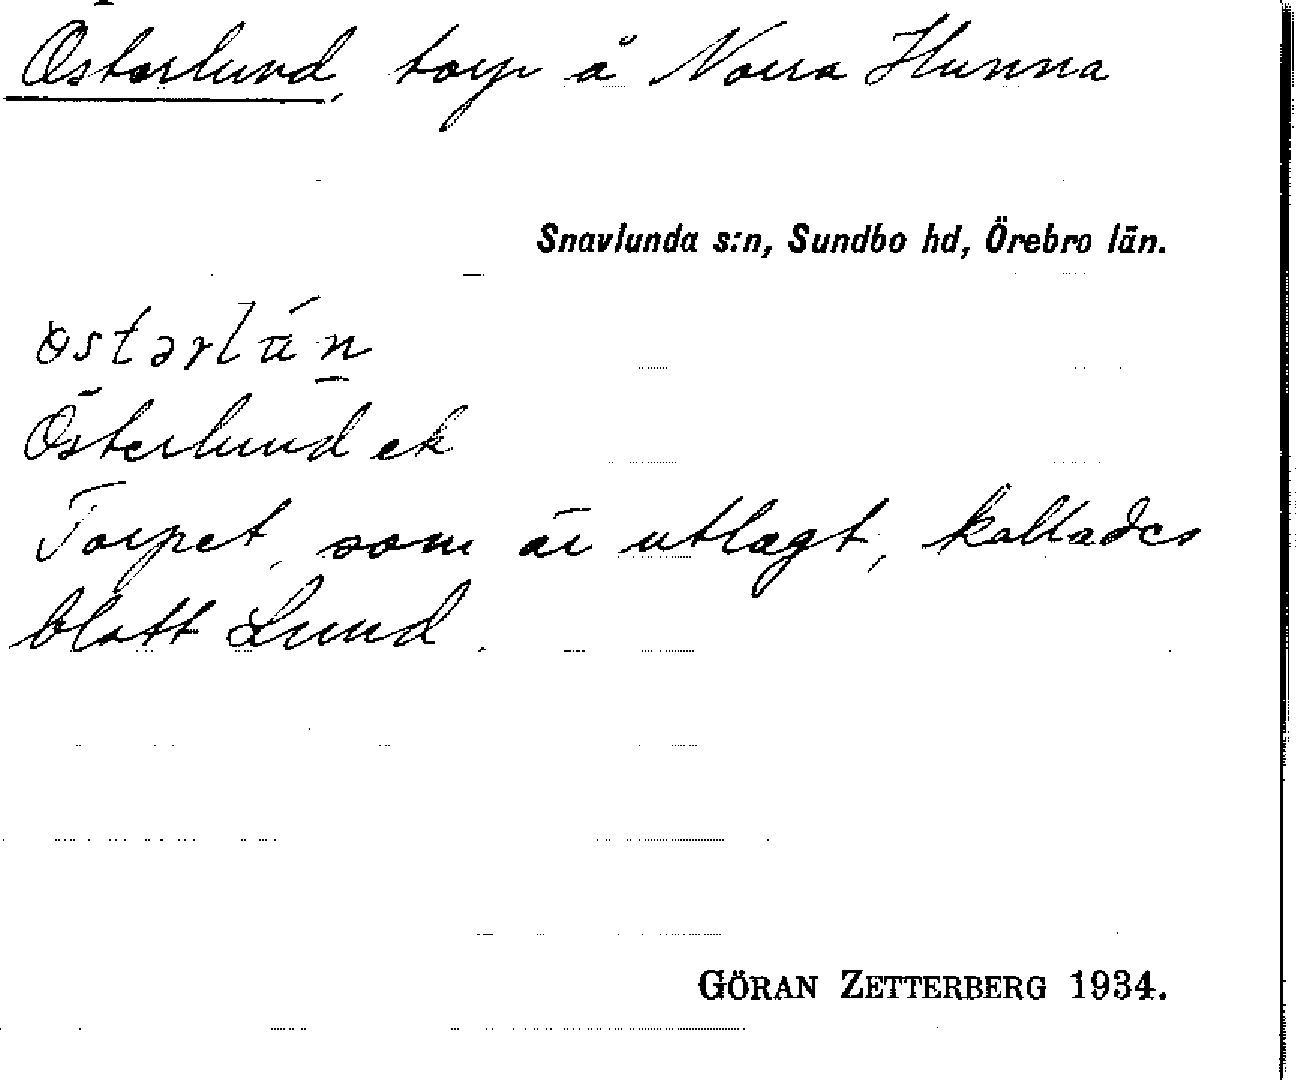 Österlund, torp å Norra Hunna
Snavlunda s:n, Sundbo hd, Örebro län.
Österlund ek
Torpet, som är utlagt, kallades
blott Lund.
GÖRAN ZETTERBERG 1934.